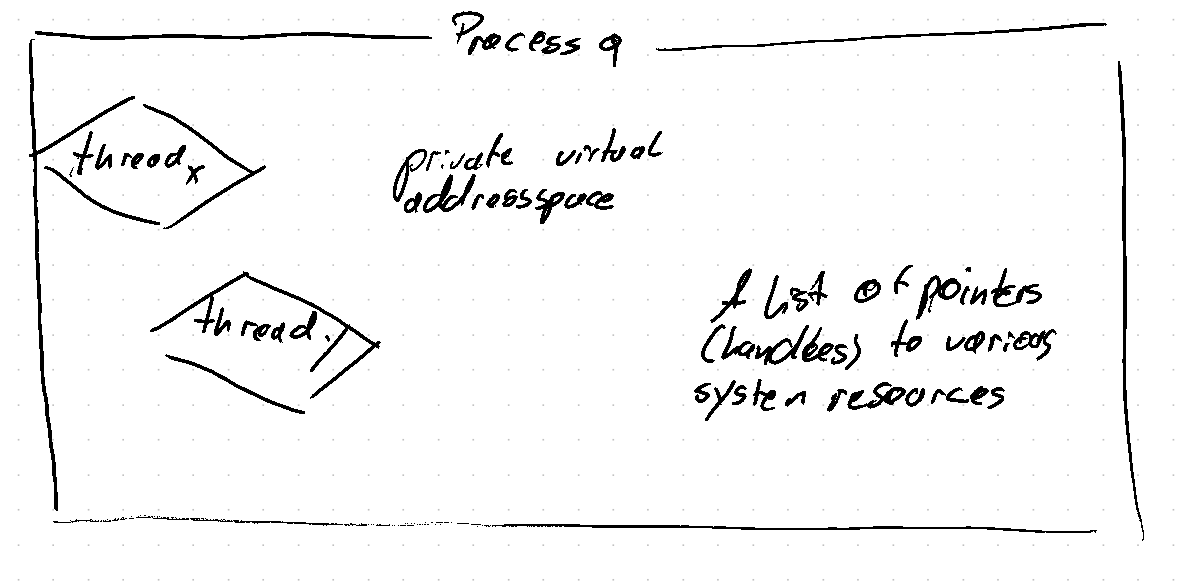 Process q
thread x
private virtual
addressspace
thread y
A list of pointers
(handles) to various
system resources